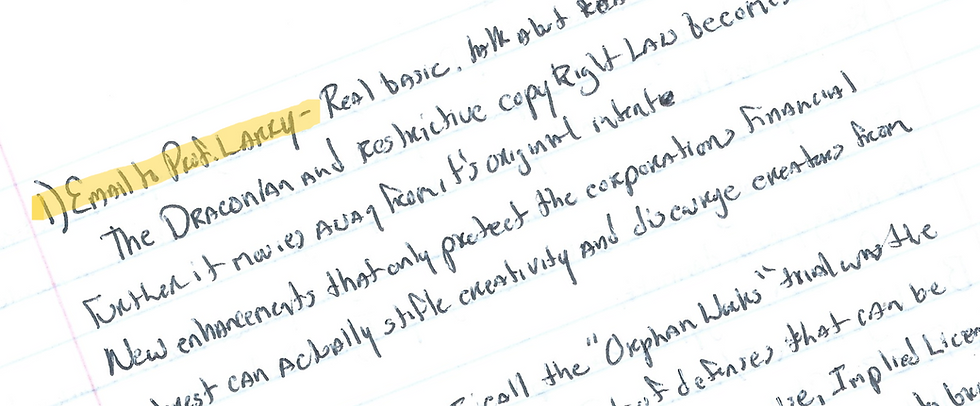 1) Email to Prof. Larry - Real basic, talk about
The Draconian and restrictive copyright Law becomes
further it movies away from it's original intent
New enhancements that only protect the corporations financial
can actually stifle creativity and discurge creators from
the "Orphan Works" trial was the
of defenses that can be
Implied